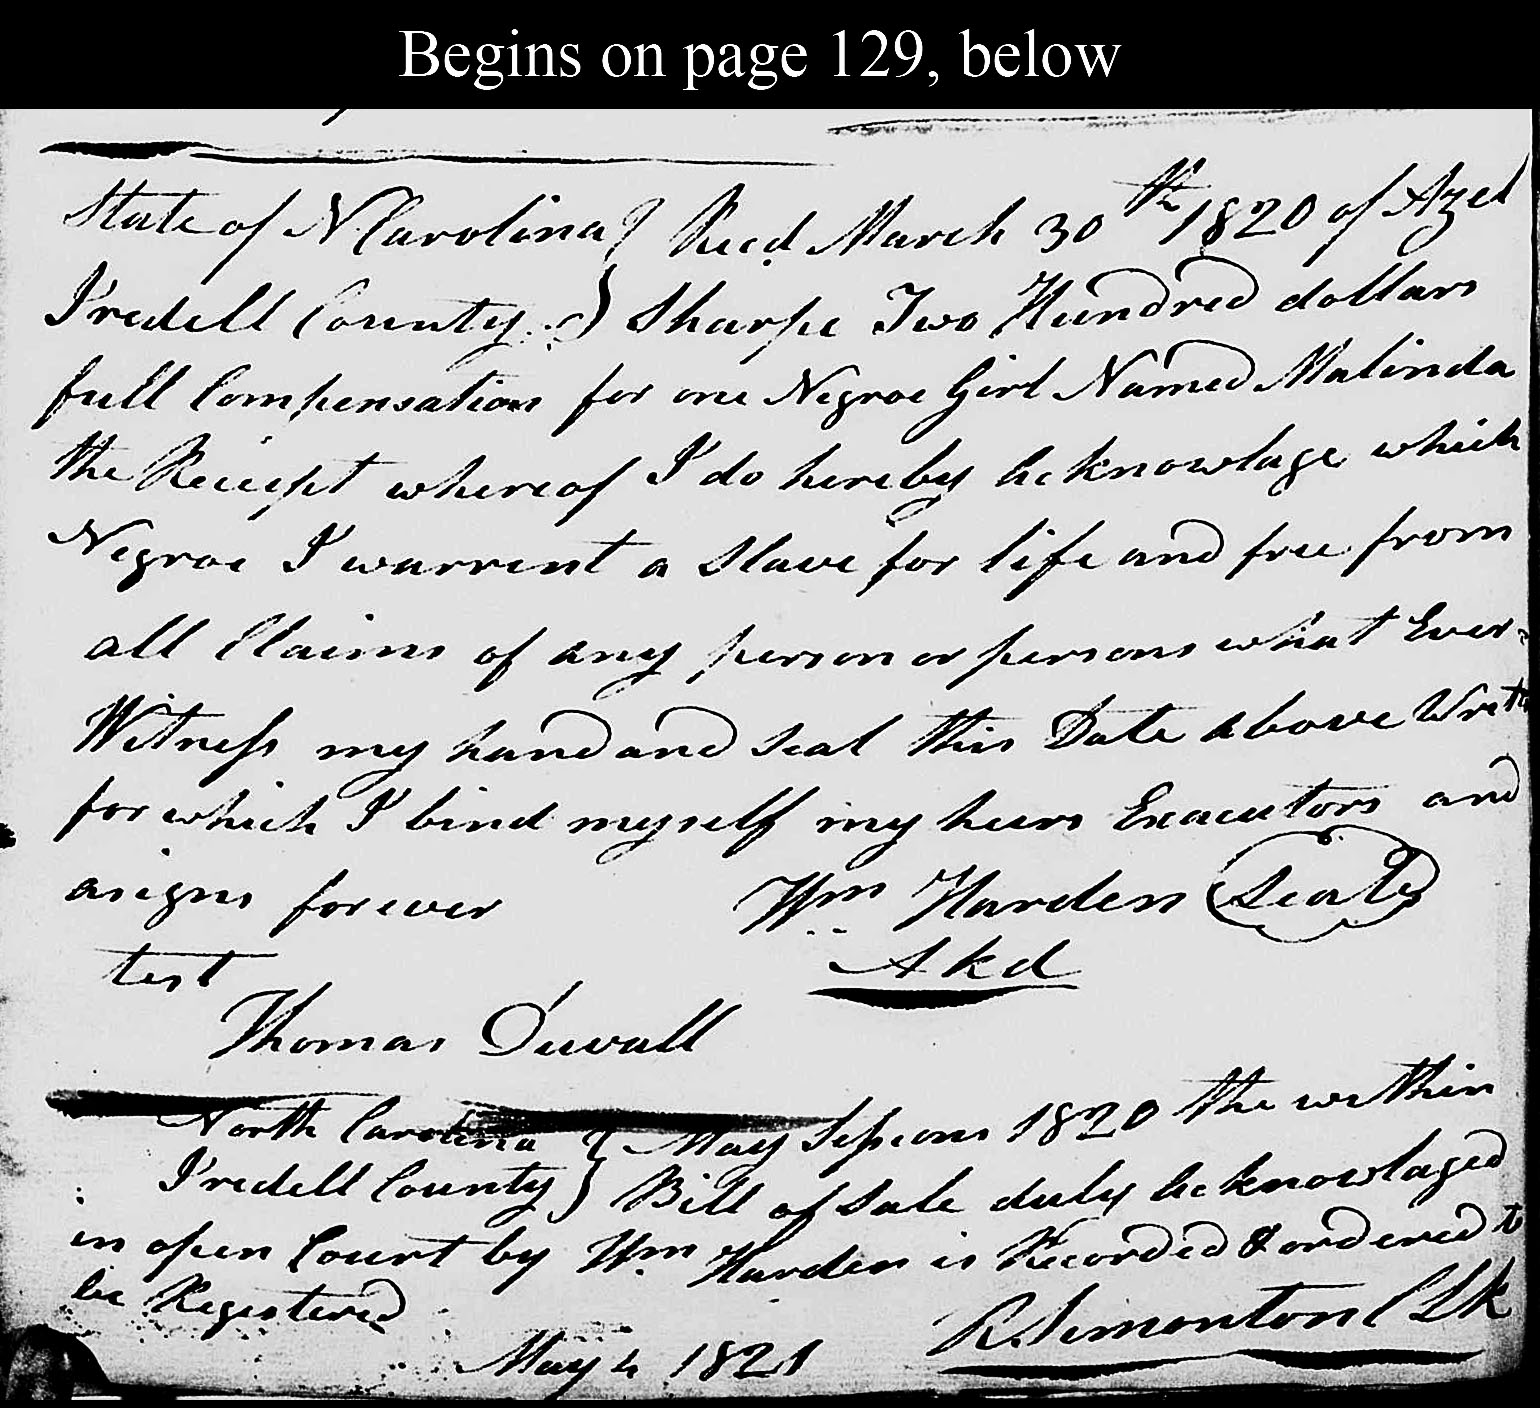 Begins on page 129, below
State of N Carolina } Recd March 30th 1820 of Azel
Iredell County } Sharpe Two Hundred dollars
full Compensation for one Negroe Girl Named Malinda
the Receipt whereof I do hereby acknowlage which
Negroe I warrent a Slave for life and free from
all Claims of any person or persons what Ever
Witness my hand and seal this Date above Writ
for which I bind myself my heirs Executors and
asigns forever Wm Harden Seal
Akd
test
Thomas Duvall
North Carolina } May Sessions 1820 the within
Iredell County } Bill of Sale duly acknowlaged
in open Court by Wm Harden is Recorded & ordered to
be Registered
R. Simonton Clk
May 4 1821